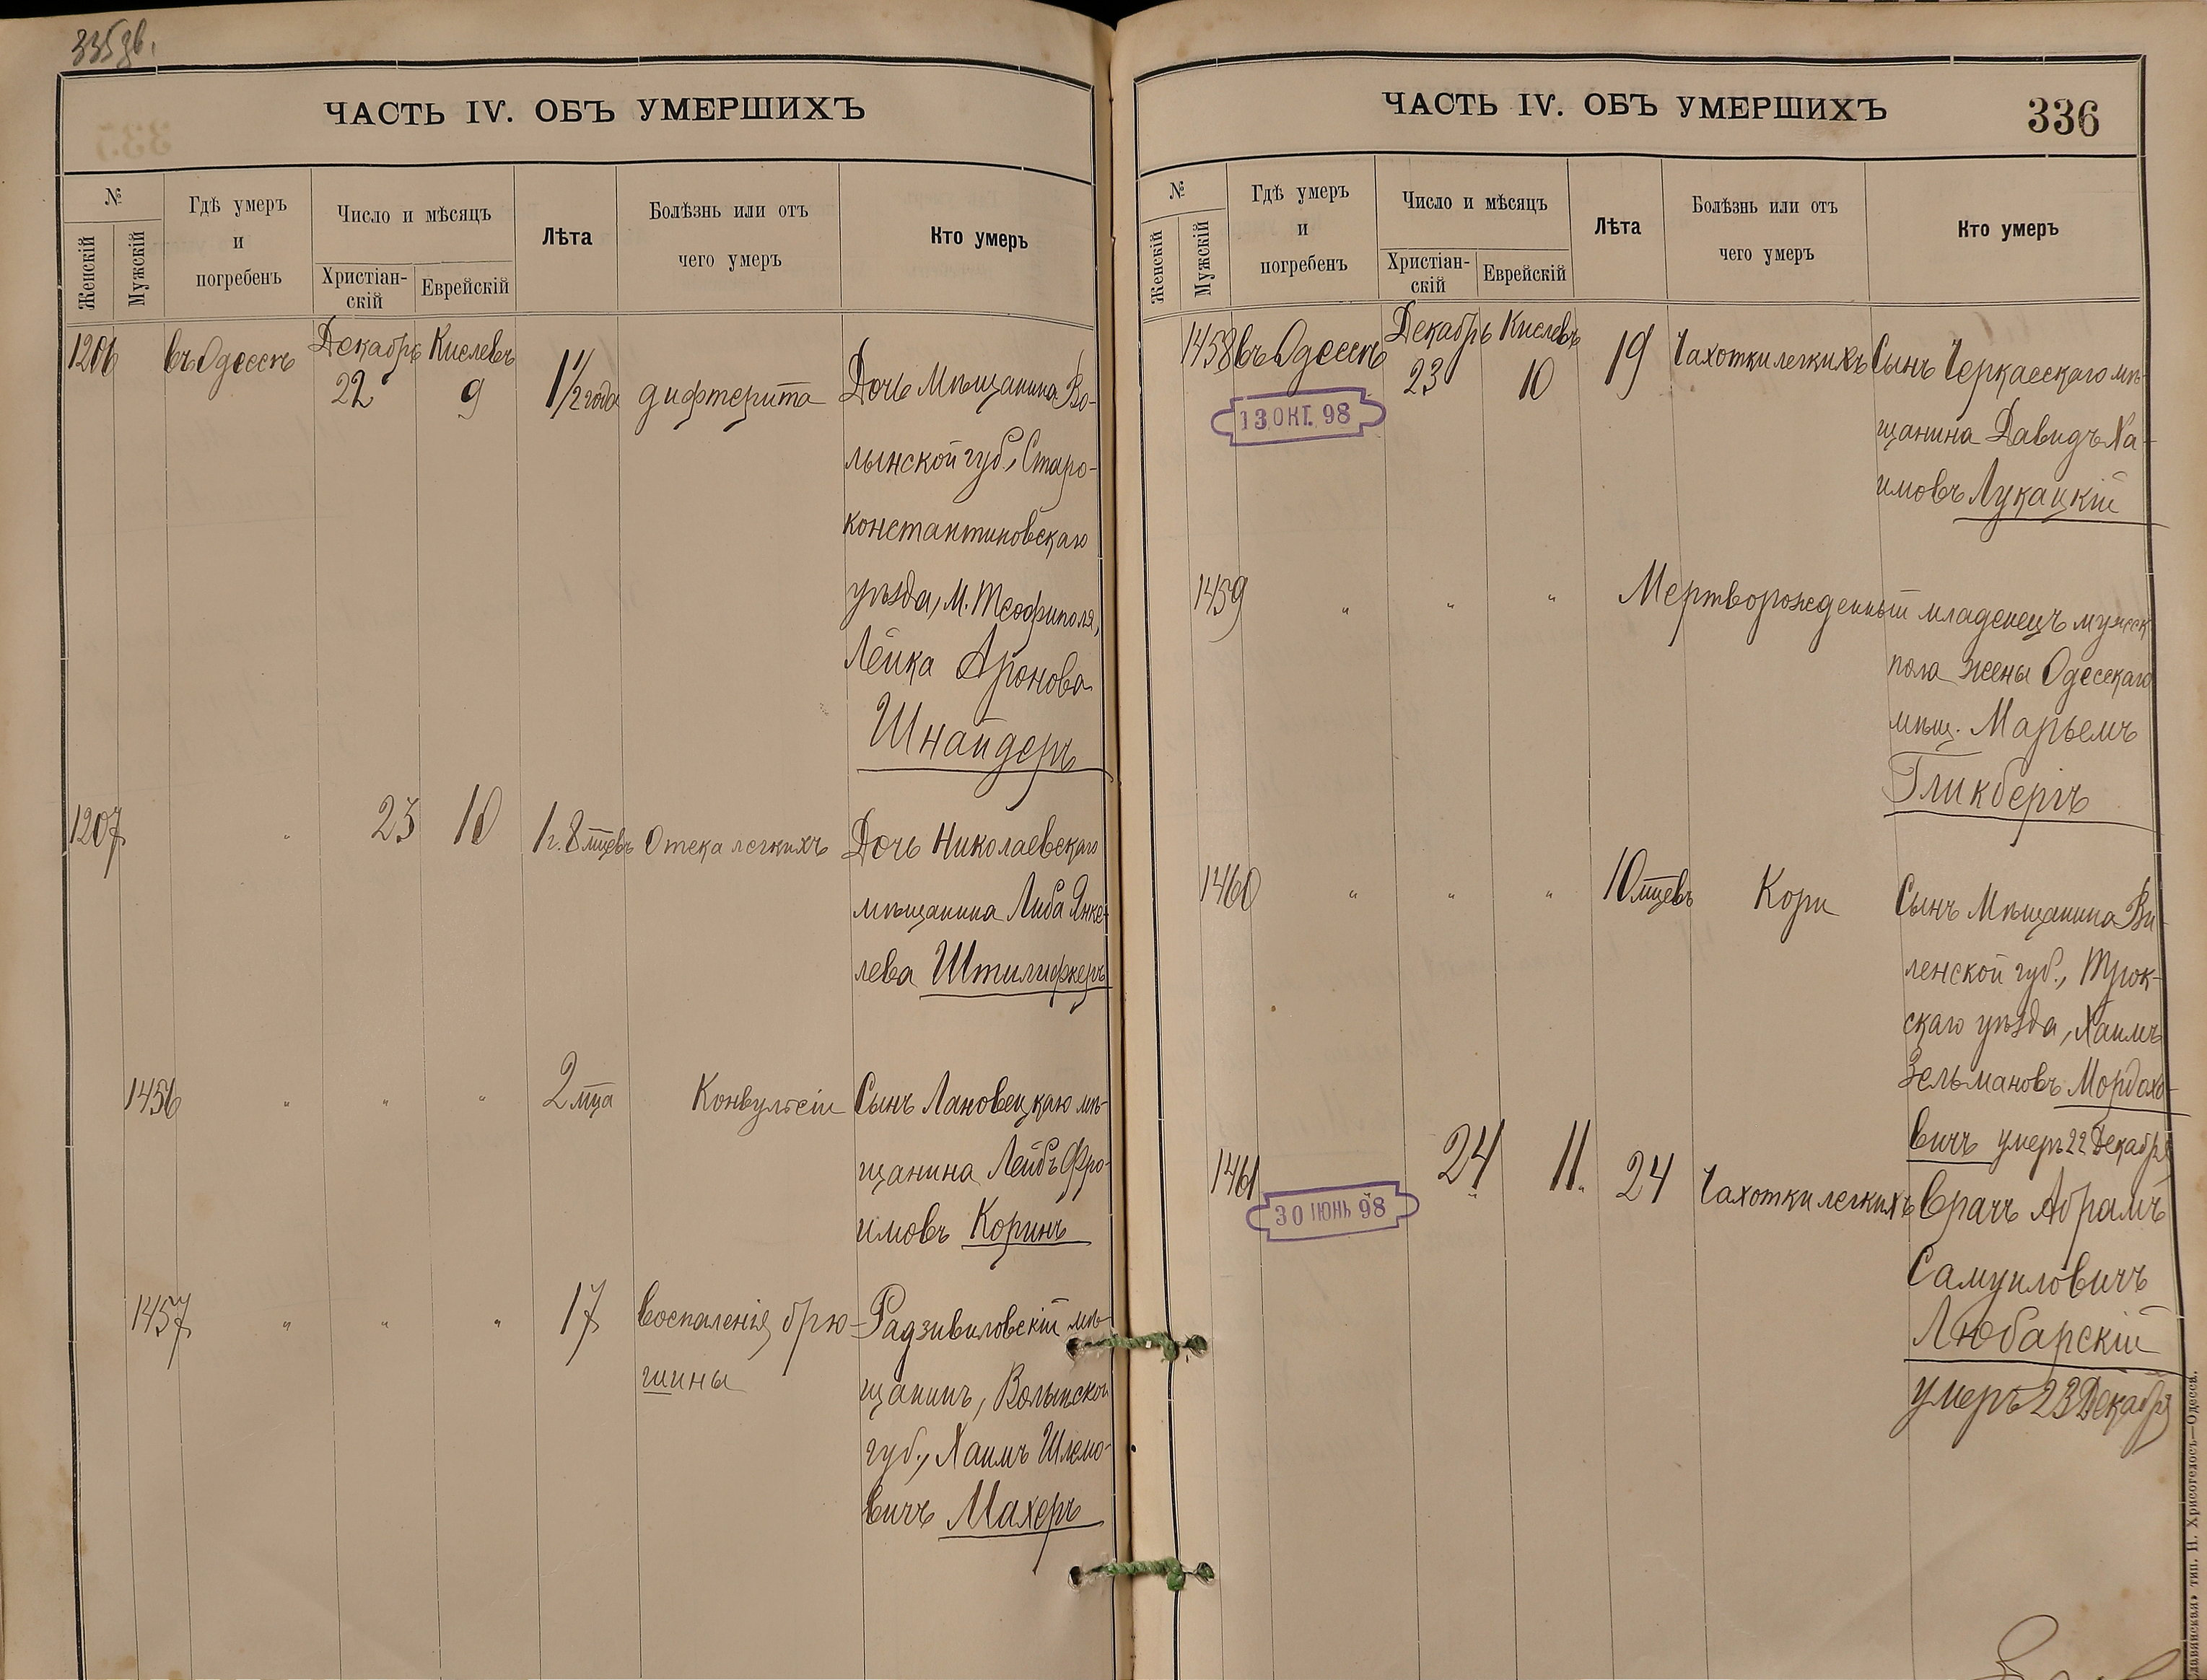 335 зв.
ЧАСТЬ IV. ОБЪ УМЕРШИХЪ
№
Женскій
Мужскій
Гдѣ умеръ
и
погребенъ
Число и мѣсяцъ
Христіан-
скій
Еврейскій
Лѣта
Болѣзнь или отъ
чего умеръ
Кто умеръ
1206 въ Одессѣ Декабрь 22 Кислевъ 9 1 1/2 года дифтерита Дочь Мѣщанина Во-
лынской губ., Старо-
константиновскаго
уѣзда, м. Теофиполя,
Лейка Аронова
Шнайдеръ
1207 " 23 10 1 г. 8 мцевъ Отека легкихъ Дочь Николаевскаго
мѣщанина Либа Янке-
лева Штилифкеръ
1456 " " " 2 мца Конвульсіи Сынъ Лановецкаго мѣ-
щанина Лейбъ Фро-
имовъ Коринъ
1457 " " " 17 Воспаленія брю- Радзивиловскій мѣ-
шины щанинъ, Волынской
губ., Хаимъ Шлемо-
вичъ Махеръ
ЧАСТЬ IV. ОБЪ УМЕРШИХЪ
336
№
Женскій
Мужскій
Гдѣ умеръ
и
погребенъ
Число и мѣсяцъ
Христіан-
скій
Еврейскій
Лѣта
Болѣзнь или отъ
чего умеръ
Кто умеръ
1458 въ Одессѣ Декабрь 23 Кислевъ 10 19 Чахотки легкихъ Сынъ Черкасскаго мѣ-
13 ОКТ. 98
щанина Давидъ Ха-
имовъ Лукацкій
1459 " " " Мертворожденный младенецъ мужск
пола жены Одесскаго
мѣщ. Марьемъ
Гликбергъ
1460 " " " 10 мцевъ Кори Сынъ Мѣщанина Ви-
ленской губ., Трок-
скаго уѣзда, Хаимъ
Зельмановъ Мордохо-
вичъ умеръ 22 Декабря
1461 24 11 24 Чахотки легкихъ Врачъ Абрамъ
30 ІЮНЬ 98
Самуиловичъ
Любарскій
умеръ 23 Декабря
тип. Н. Хрисогелосъ—Одесса.